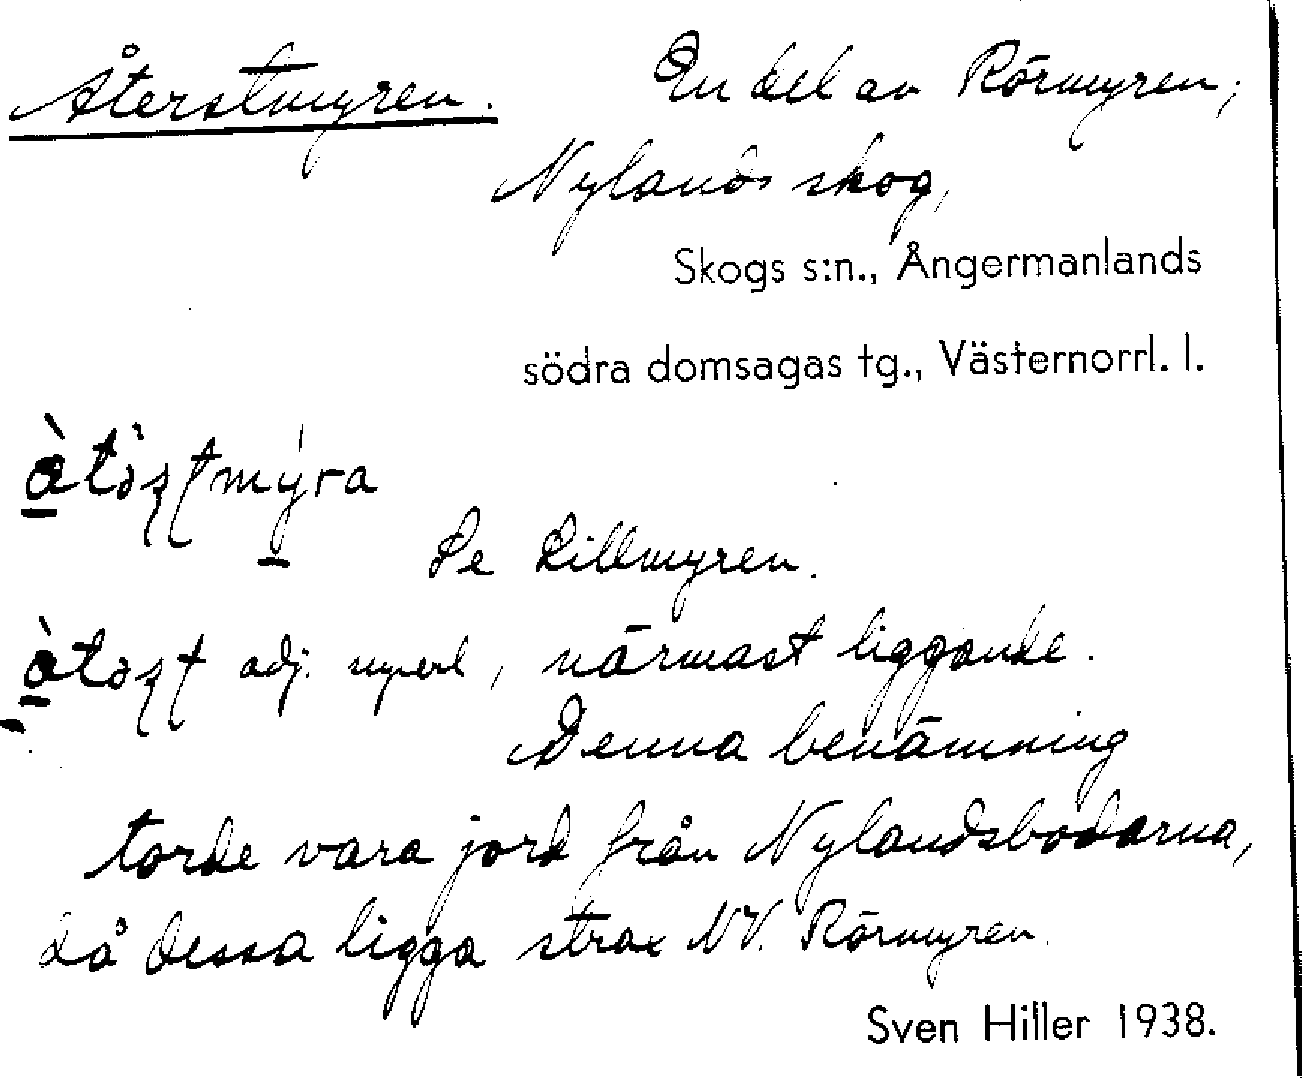 Återstmyren. En del av Rörmyren;
Nylands skog,
Skogs s:n., Ångermanlands
södra domsagas tg., Västernorrl. l.
Se Lillmyren.
adj. superl, närmast liggande.
Denna benämning
torde vara jord från Nylandsbodarna,
då dessa ligga strax NV. Rörmyren.
Sven Hiller 1938.